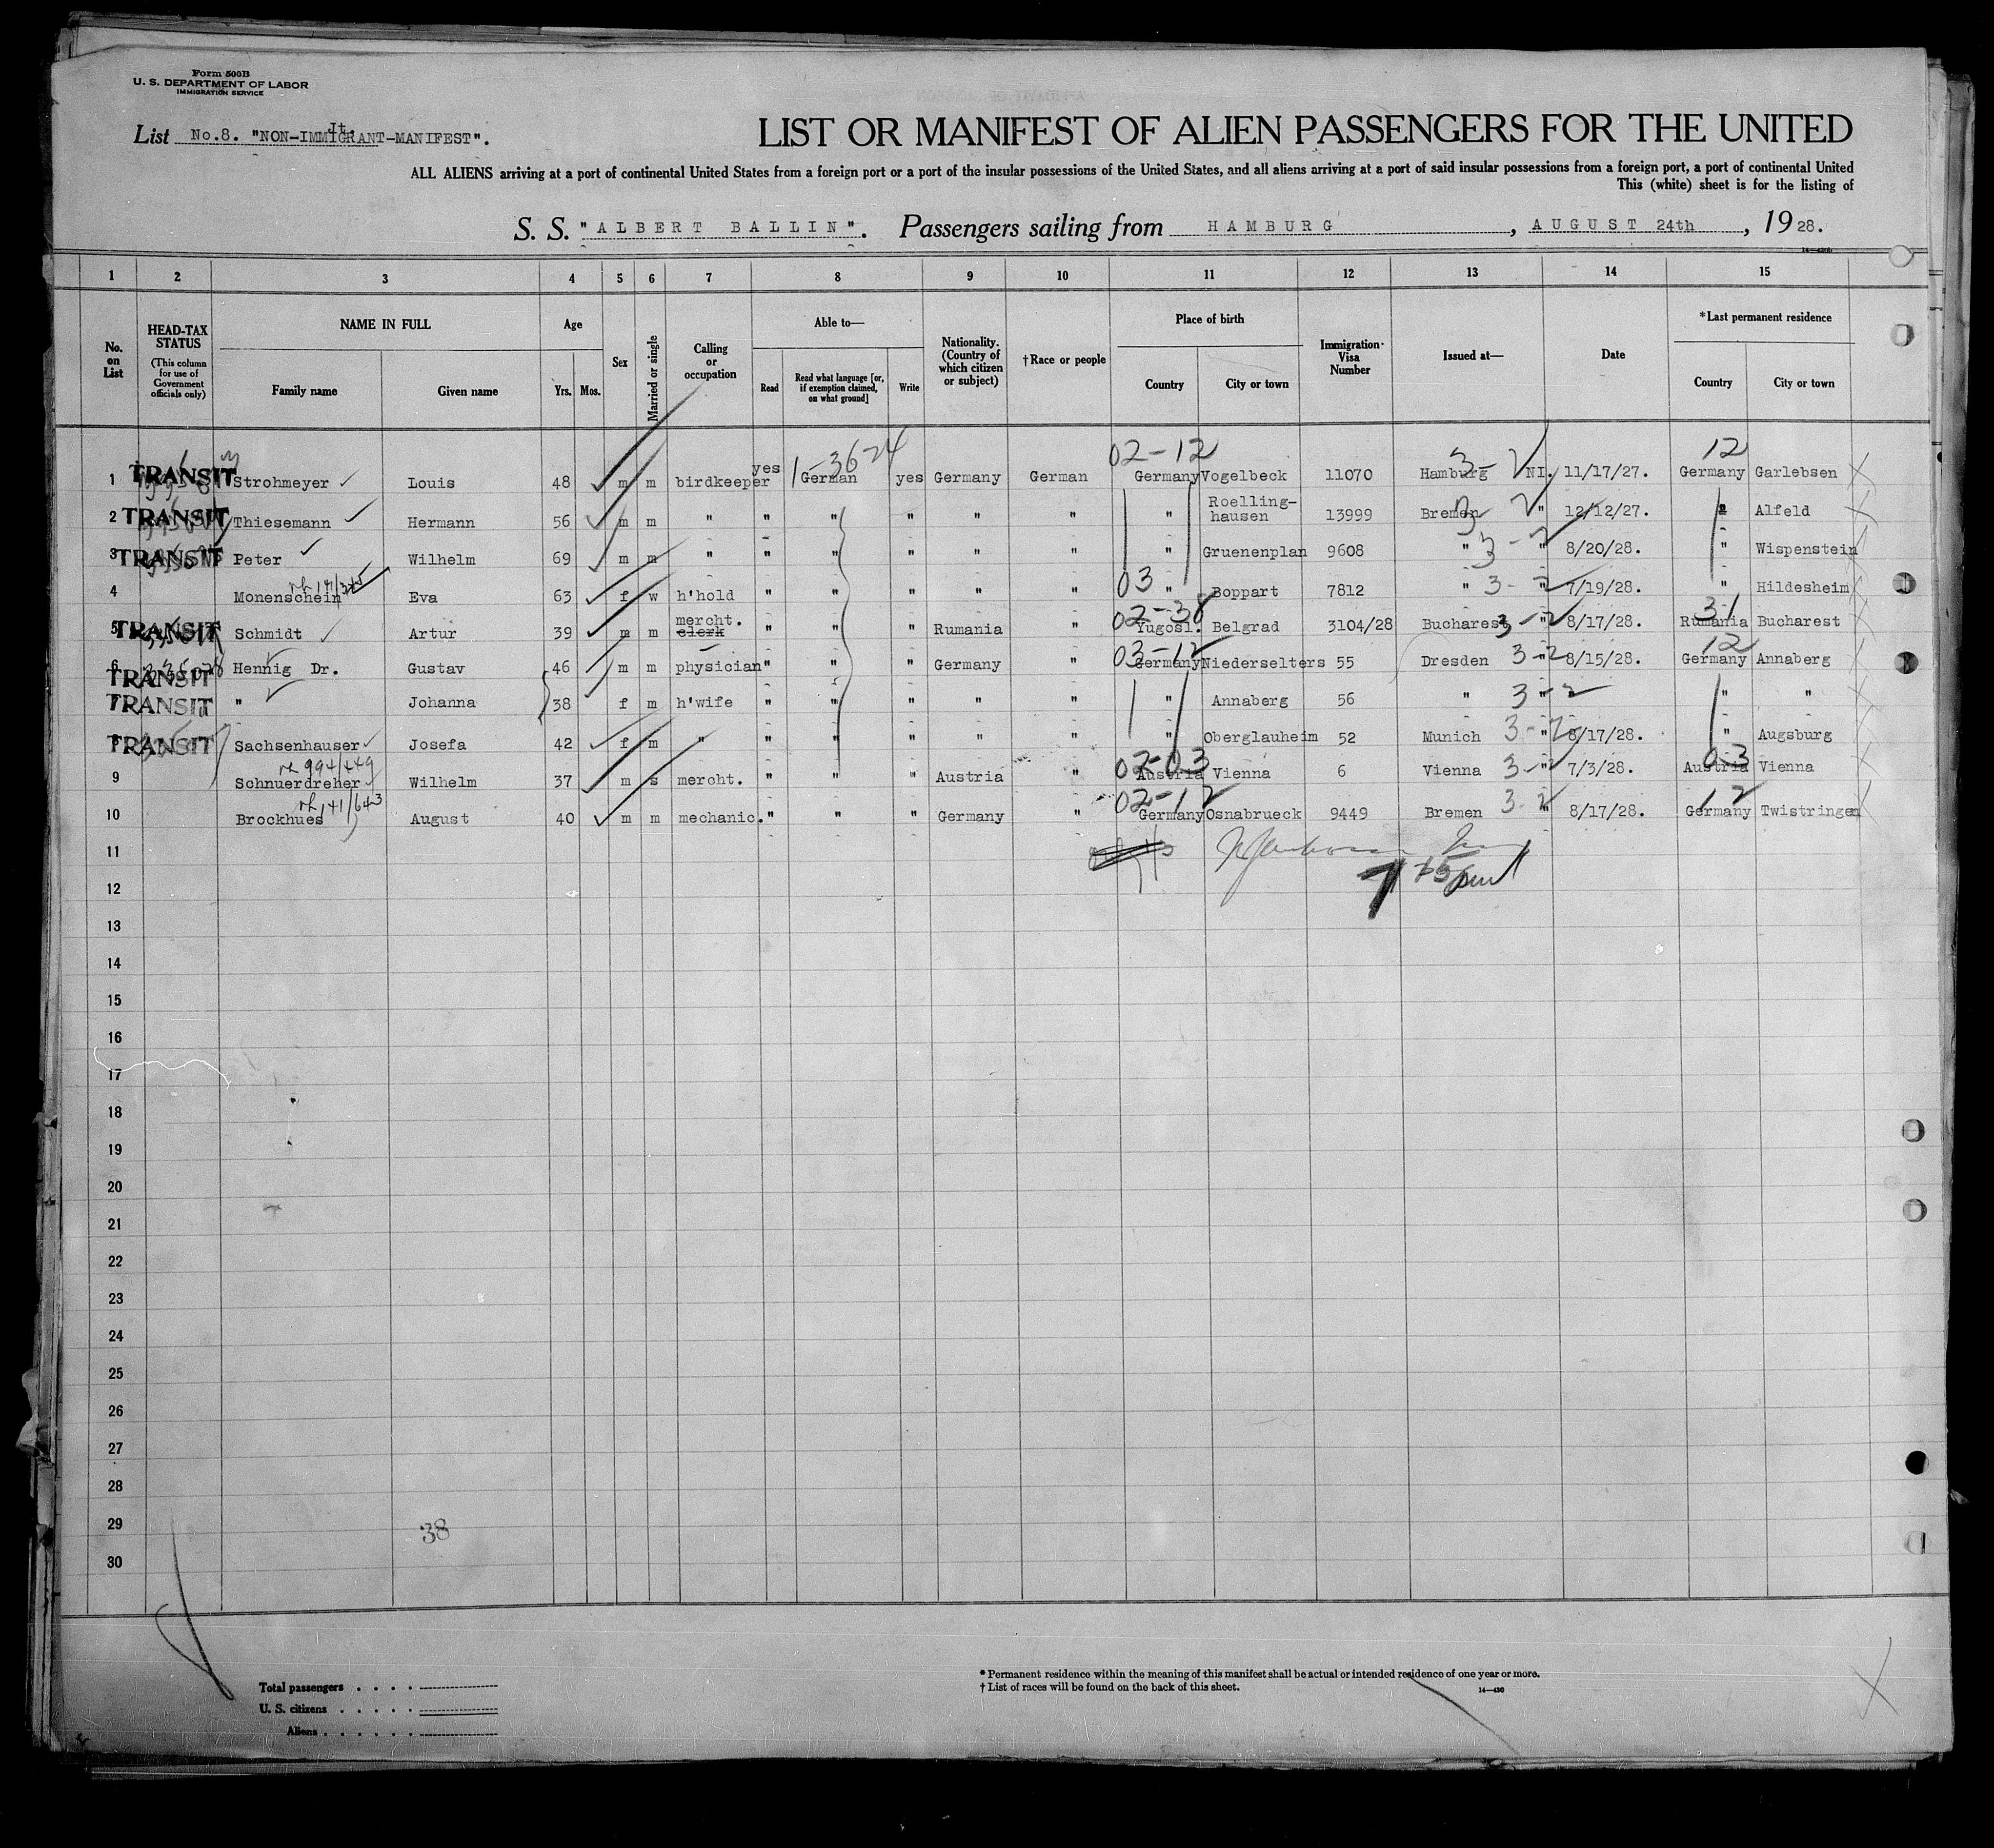 Form 500B
U. S. DEPARTMENT OF LABOR
IMMIGRATION SERVICE
List No.8. "NON-IMMIGRANT-MANIFEST".
LIST OR MANIFEST OF ALIEN PASSENGERS FOR THE UNITED
ALL ALIENS arriving at a port of continental United States from a foreign port or a port of the insular possessions of the United States, and all aliens arriving at a port of said insular possessions from a foreign port, a port of continental United
This (white) sheet is for the listing of
S. S. "ALBERT BALLIN". Passengers sailing from HAMBURG, AUGUST 24th, 1928.
1 2 3 4 5 6 7 8 9 10 11 12 13 14 15
No. on List
HEAD-TAX STATUS (This column for use of Government officials only)
NAME IN FULL Family name Given name
Age Yrs. Mos.
Sex
Married or single
Calling or occupation
Able to— Read Read what language [or, if exemption claimed, on what ground] Write
Nationality. (Country of which citizen or subject)
†Race or people
Place of birth Country City or town
Immigration Visa Number
Issued at—
Date
*Last permanent residence Country City or town
1-36-24 02-12 3-2 12
1 TRANSIT Strohmeyer Louis 48 m m birdkeeper yes German yes Germany German Germany Vogelbeck 11070 Hamburg NI. 11/17/27. Germany Garlebsen
2 TRANSIT Thiesemann Hermann 56 m m " " " " " " " Roelling-hausen 13999 Bremen " 12/12/27. " Alfeld
3 TRANSIT Peter Wilhelm 69 m m " " " " " " " Gruenenplan 9608 " 3-2 " 8/20/28. " Wispenstein
4 Monenschein Eva 63 f w h'hold " " " " " 03 " Boppart 7812 " 3-2 " 7/19/28. " Hildesheim
5 TRANSIT Schmidt Artur 39 m m mercht. clerk " " " Rumania " 02-38 Yugosl. Belgrad 3104/28 Bucharest 3-2 " 8/17/28. 31 Rumania Bucharest
6 TRANSIT Hennig Dr. Gustav 46 m m physician " " " Germany " 03-12 Germany Niederselters 55 Dresden 3-2 " 8/15/28. 12 Germany Annaberg
7 TRANSIT " Johanna 38 f m h'wife " " " " " " Annaberg 56 " 3-2 " " " "
8 TRANSIT Sachsenhauser Josefa 42 f m " " " " " " " Oberglauheim 52 Munich 3-2 " 8/17/28. " Augsburg
994/449
9 Schnuerdreher Wilhelm 37 m s mercht. " " " Austria " 02-03 Austria Vienna 6 Vienna 3-2 " 7/3/28. 03 Austria Vienna
141/643
10 Brockhues August 40 m m mechanic. " " " Germany " 02-12 Germany Osnabrueck 9449 Bremen 3-2 " 8/17/28. 12 Germany Twistringen
11
12
13
14
15
16
17
18
19
20
21
22
23
24
25
26
27
28
29
38
30
Total passengers . . . .
U. S. citizens . . . . .
Aliens . . . . . .
* Permanent residence within the meaning of this manifest shall be actual or intended residence of one year or more.
† List of races will be found on the back of this sheet.
14—430